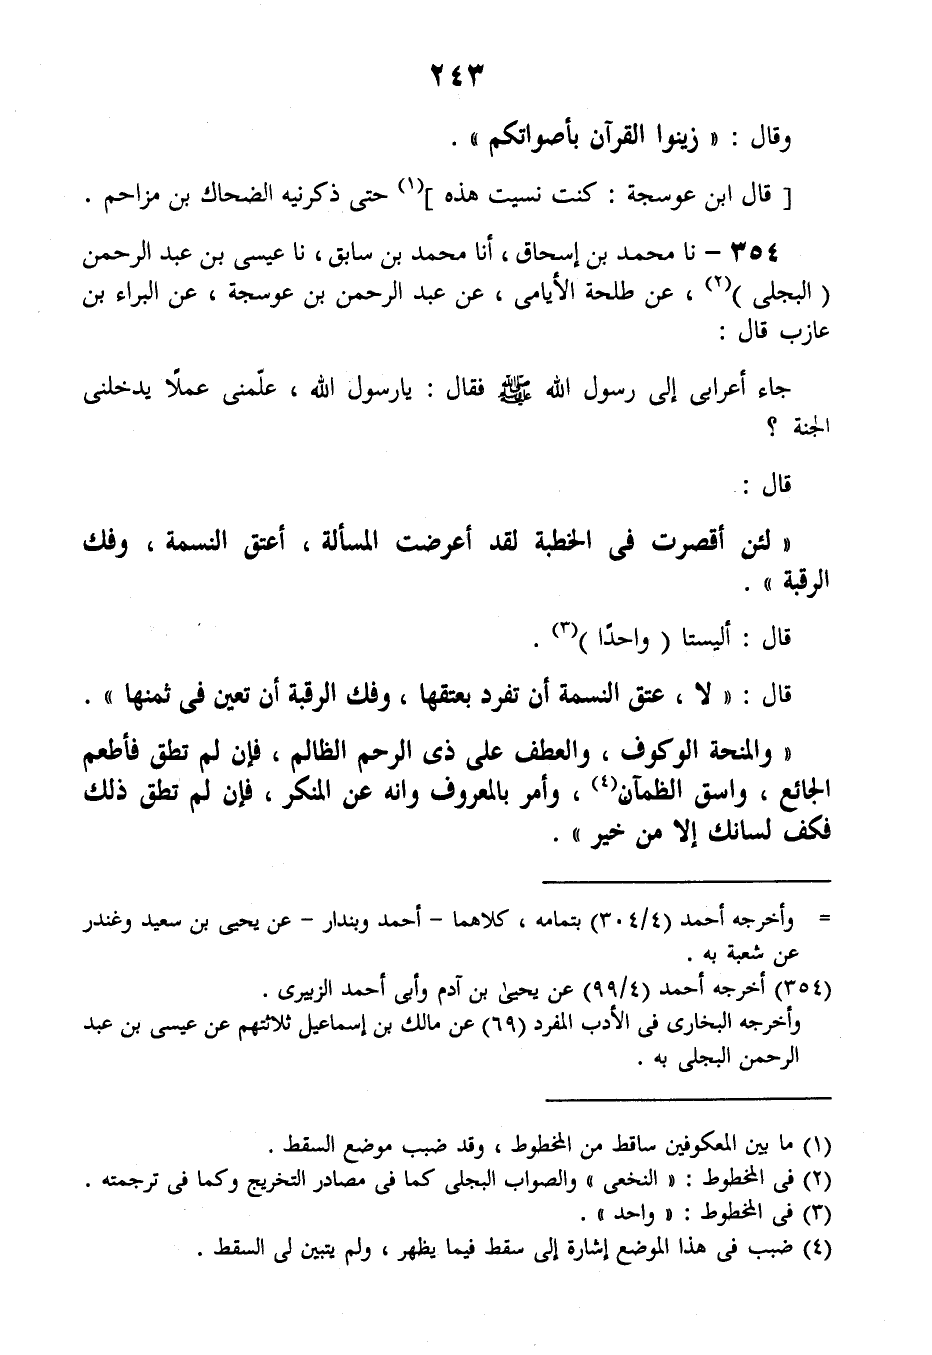 ٢٤٣
وقال : « زينوا القرآن بأصواتكم » .
[ قال ابن عوسجة : كنت نسيت هذه ](١) حتى ذكرنيه الضحاك بن مزاحم .
٣٥٤ – نا محمد بن إسحاق ، أنا محمد بن سابق ، نا عيسى بن عبد الرحمن
( البجلى )(٢) ، عن طلحة الأيامى ، عن عبد الرحمن بن عوسجة ، عن البراء بن
عازب قال :
جاء أعرابى إلى رسول الله ﷺ فقال : يارسول الله ، علّمنى عملًا يدخلنى
الجنة ؟
قال :
« لئن أقصرت فى الخطبة لقد أعرضت المسألة ، أعتق النسمة ، وفك
الرقبة » .
قال : أليستا ( واحدًا )(٣) .
قال : « لا ، عتق النسمة أن تفرد بعتقها ، وفك الرقبة أن تعين فى ثمنها » .
« والمنحة الوكوف ، والعطف على ذى الرحم الظالم ، فإن لم تطق فأطعم
الجائع ، واسق الظمآن(٤) ، وأمر بالمعروف وانه عن المنكر ، فإن لم تطق ذلك
فكف لسانك إلا من خير » .
= وأخرجه أحمد (٣٠٤/٤) بتمامه ، كلاهما – أحمد وبندار – عن يحيى بن سعيد وغندر
عن شعبة به .
(٣٥٤) أخرجه أحمد (٩٩/٤) عن يحيىٰ بن آدم وأبى أحمد الزبيرى .
وأخرجه البخارى فى الأدب المفرد (٦٩) عن مالك بن إسماعيل ثلاثتهم عن عيسى بن عبد
الرحمن البجلى به .
(١) ما بين المعكوفين ساقط من المخطوط ، وقد ضبب موضع السقط .
(٢) فى المخطوط : « النخعى » والصواب البجلى كما فى مصادر التخريج وكما فى ترجمته .
(٣) فى المخطوط : « واحد » .
(٤) ضبب فى هذا الموضع إشارة إلى سقط فيما يظهر ، ولم يتبين لى السقط .